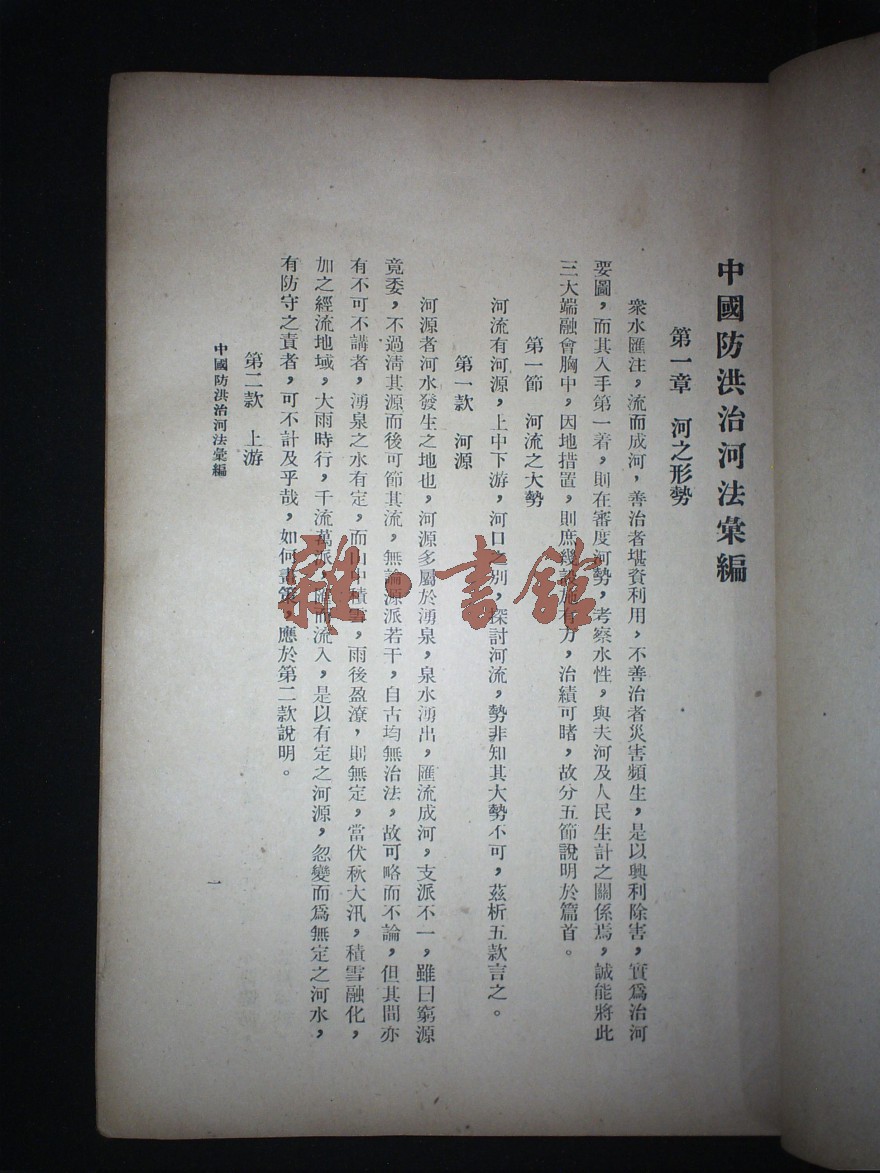 中國防洪治河法彙編
第一章　河之形勢
衆水匯注，流而成河，善治者堪資利用，不善治者災害頻生，是以興利除害，實爲治河
要圖，而其入手第一着，則在審度河勢，考察水性，與夫河及人民生計之關係焉，誠能將此
三大端融會胸中，因地措置，則庶幾設施有方，治績可睹，故分五節說明於篇首。
第一節　河流之大勢
河流有河源，上中下游，河口之別，探討河流，勢非知其大勢不可，茲析五款言之。
第一款　河源
河源者河水發生之地也，河源多屬於湧泉，泉水湧出，匯流成河，支派不一，雖曰窮源
竟委，不過淸其源而後可節其流，無論源派若干，自古均無治法，故可略而不論，但其間亦
有不可不講者，湧泉之水有定，而山中積雪，雨後盈潦，則無定，當伏秋大汛，積雪融化，
加之經流地域，大雨時行，千流萬派，匯而流入，是以有定之河源，忽變而爲無定之河水，
有防守之責者，可不計及乎哉，如何畫策，應於第二款說明。
第二款　上游
中國防洪治河法彙編
一
雜·書館